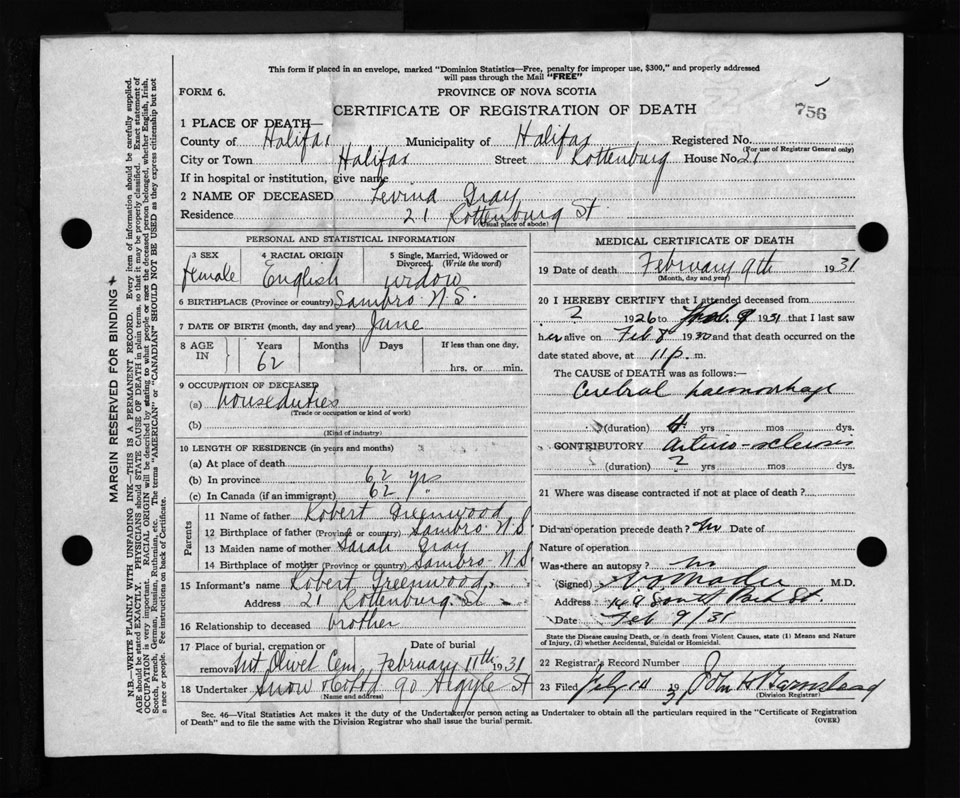 This form if placed in an envelope, marked "Dominion Statistics—Free, penalty for improper use, $300," and properly addressed
will pass through the Mail "FREE"
FORM 6.
PROVINCE OF NOVA SCOTIA
CERTIFICATE OF REGISTRATION OF DEATH
756
1 PLACE OF DEATH—
County of Halifax Municipality of Halifax Registered No.
(For use of Registrar General only)
City or Town Halifax Street Rottenburg House No. 21
If in hospital or institution, give name
2 NAME OF DECEASED Levina Gray
Residence 21 Rottenburg St
(Usual place of abode)
PERSONAL AND STATISTICAL INFORMATION
3 SEX 4 RACIAL ORIGIN 5 Single, Married, Widowed or
Divorced. (Write the word)
female English widow
6 BIRTHPLACE (Province or country) Sambro N.S.
7 DATE OF BIRTH (month, day and year) June
8 AGE IN Years Months Days If less than one day,
62 hrs. or min.
9 OCCUPATION OF DECEASED
(a) houseduties
(Trade or occupation or kind of work)
(b)
(Kind of industry)
10 LENGTH OF RESIDENCE (in years and months)
(a) At place of death
(b) In province 62 yrs
(c) In Canada (if an immigrant) 62 "
Parents
11 Name of father Robert Greenwood
12 Birthplace of father (Province or country) Sambro N.S
13 Maiden name of mother Sarah Gray
14 Birthplace of mother (Province or country) Sambro N.S
15 Informant's name Robert Greenwood
Address 21 Rottenburg St
16 Relationship to deceased brother
17 Place of burial, cremation or Date of burial
removal Mt Olivet Cem February 11th 1931
18 Undertaker Snow & Co Ltd 90 Argyle St
(Name and address)
MEDICAL CERTIFICATE OF DEATH
19 Date of death February 9th 1931
(Month, day and year)
20 I HEREBY CERTIFY that I attended deceased from
2 1926 to Feb. 9 1931 that I last saw
her alive on Feb 8 1930 and that death occurred on the
date stated above, at 11 p. m.
The CAUSE of DEATH was as follows:—
Cerebral haemorrhage
(duration) 4 yrs mos dys.
CONTRIBUTORY arterio-sclerosis
(duration) 2 yrs mos dys.
21 Where was disease contracted if not at place of death?
Did an operation precede death? No Date of
Nature of operation
Was there an autopsy? No
(Signed) M.D.
Address 149 South Park St.
Date Feb 9/31
State the Disease causing Death, or in death from Violent Causes, state (1) Means and Nature
of Injury, (2) whether Accidental, Suicidal or Homicidal.
22 Registrar's Record Number
23 Filed 14 193 John
(Division Registrar)
Sec. 46—Vital Statistics Act makes it the duty of the Undertaker or person acting as Undertaker to obtain all the particulars required in the "Certificate of Registration
of Death" and to file the same with the Division Registrar who shall issue the burial permit. (OVER)
MARGIN RESERVED FOR BINDING
N.B.—WRITE PLAINLY WITH UNFADING INK—THIS IS A PERMANENT RECORD. Every item of information should be carefully supplied.
AGE should be stated EXACTLY. PHYSICIANS should STATE CAUSE OF DEATH in plain terms, so that it may be properly classified. Exact statement of
OCCUPATION is very important. RACIAL ORIGIN will be described by stating to what people or race the deceased person belonged, whether English, Irish,
Scotch, French, German, Russian, Ruthenian, etc. The terms "AMERICAN" or "CANADIAN" SHOULD NOT BE USED as they express citizenship but not
a race or people. Fee instructions on back of Certificate.